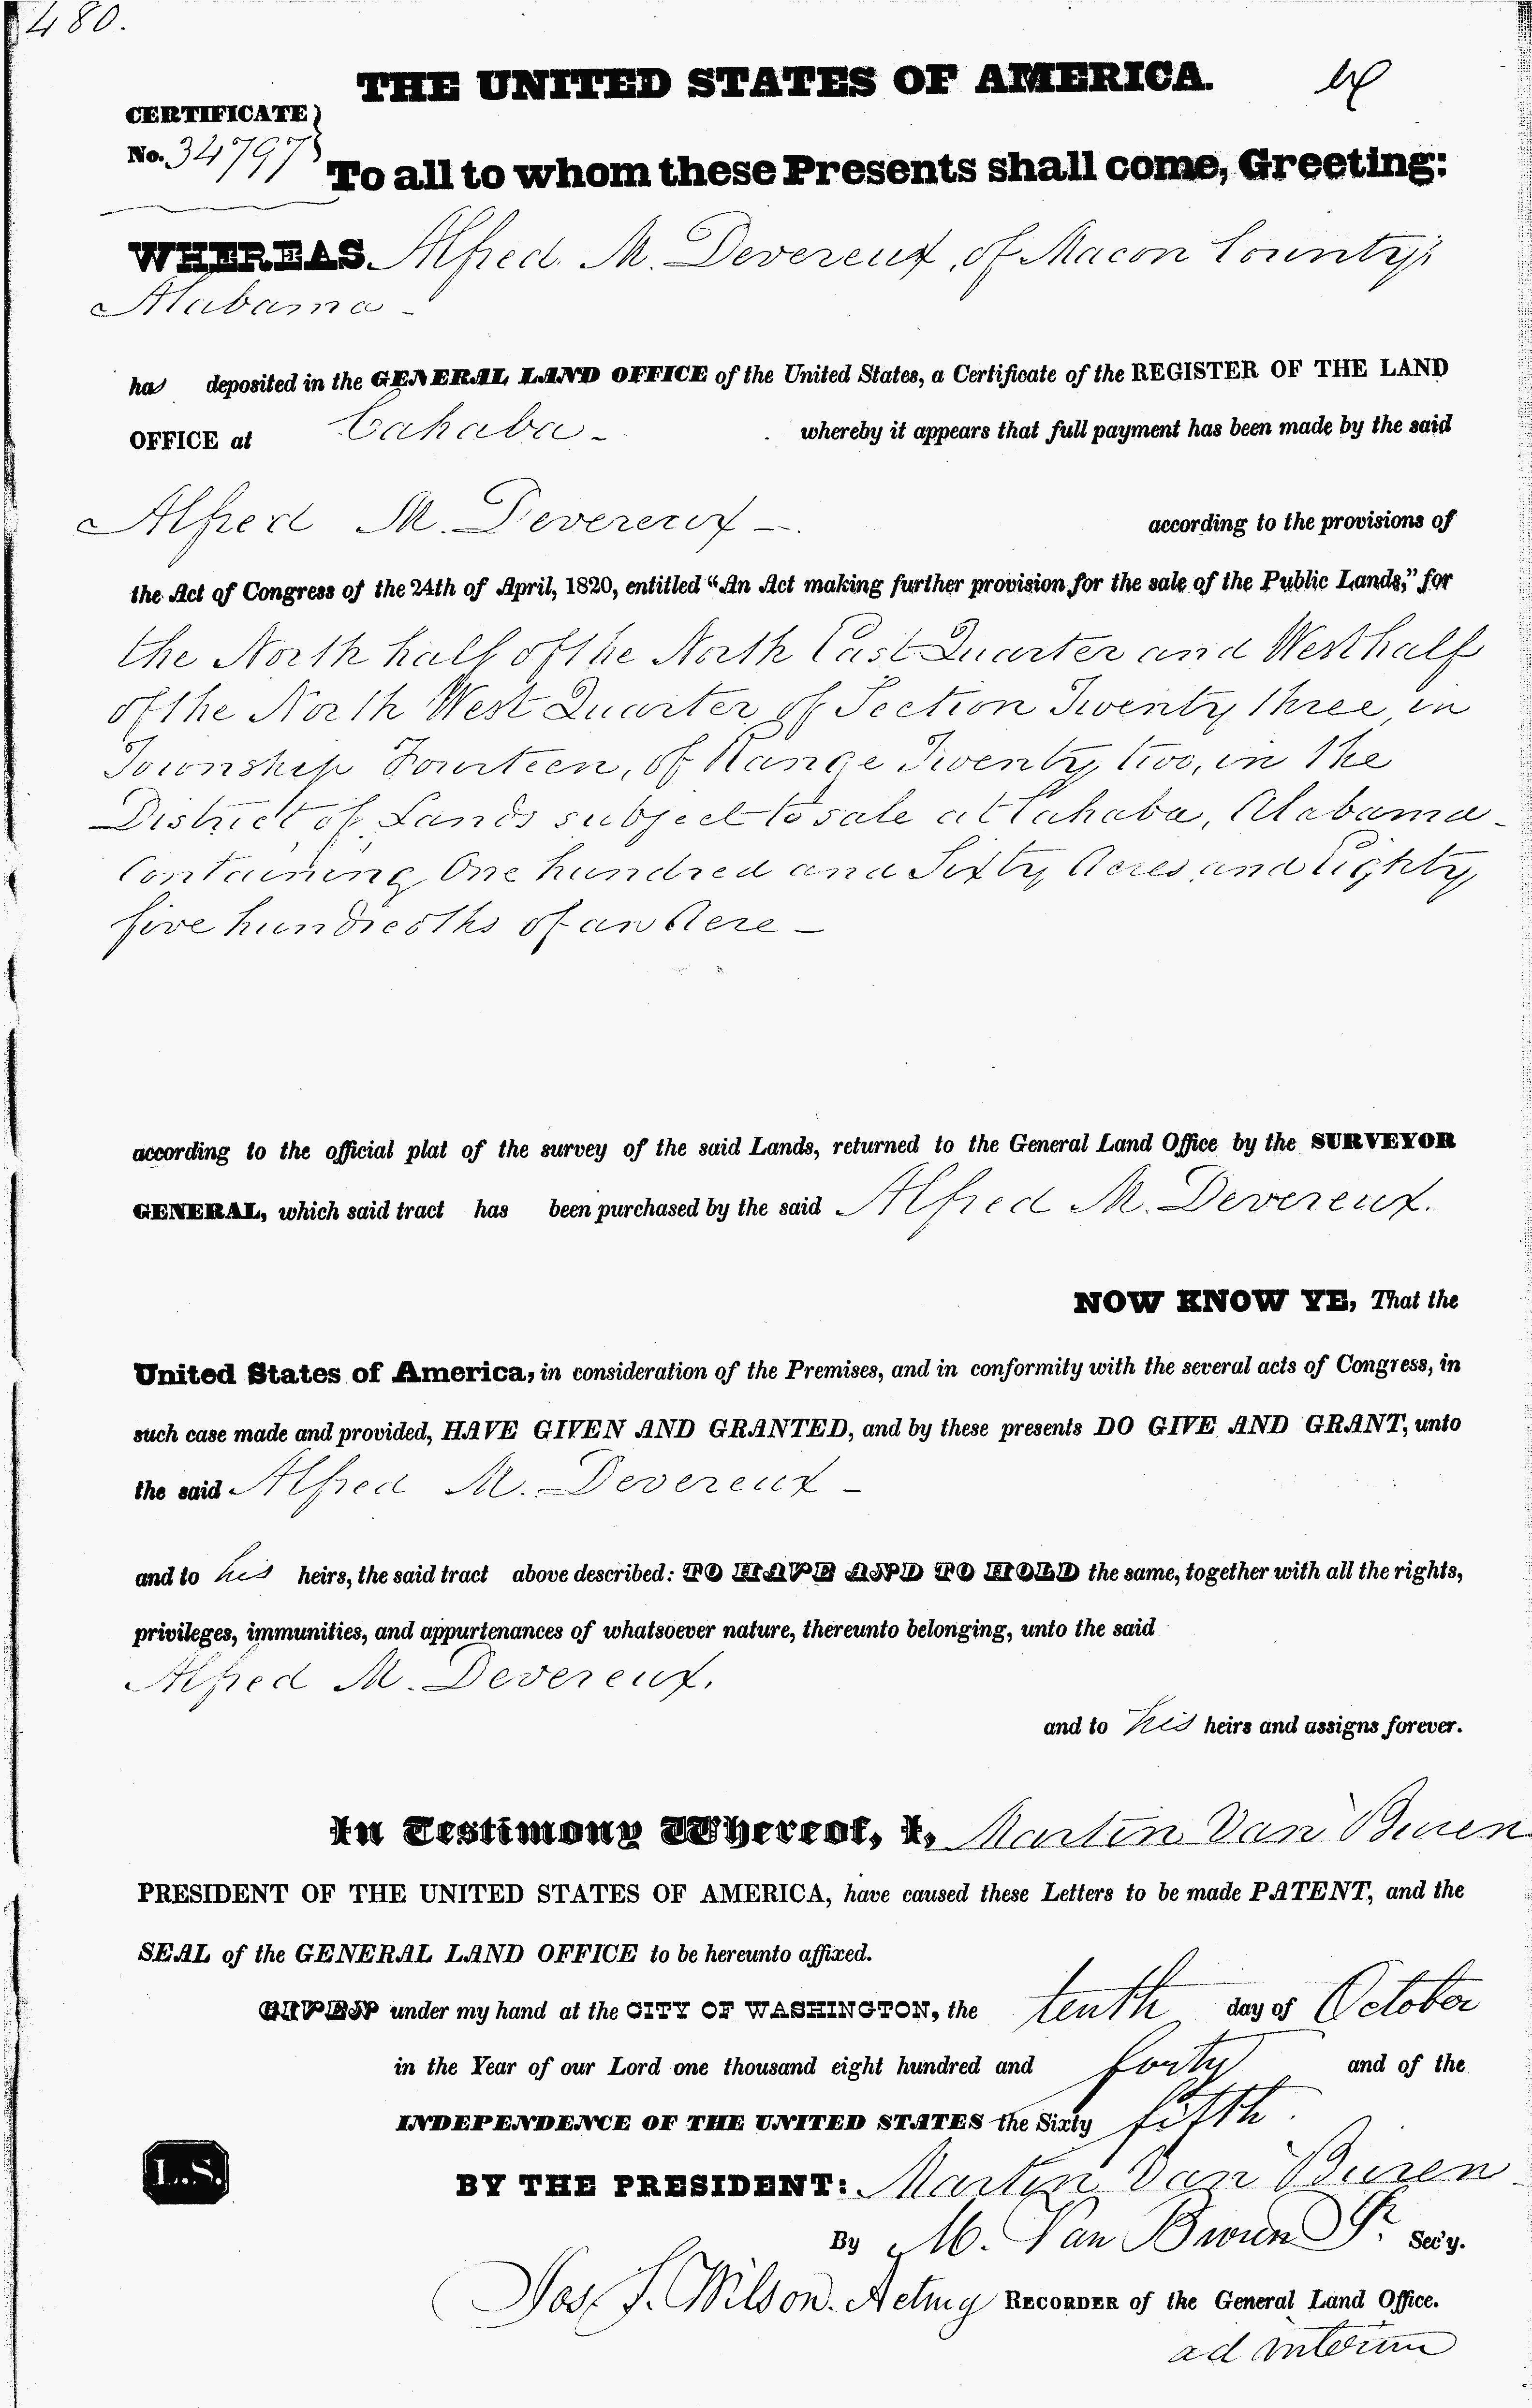 480.
THE UNITED STATES OF AMERICA.
CERTIFICATE
No. 34797
To all to whom these Presents shall come, Greeting:
WHEREAS Alfred M. Devereux, of Macon County,
Alabama -
has deposited in the GENERAL LAND OFFICE of the United States, a Certificate of the REGISTER OF THE LAND
OFFICE at Cahaba - whereby it appears that full payment has been made by the said
Alfred M. Devereux - according to the provisions of
the Act of Congress of the 24th of April, 1820, entitled “An Act making further provision for the sale of the Public Lands,” for
the North half of the North East Quarter and West half
of the North West Quarter of Section Twenty three, in
Township Fourteen, of Range Twenty two, in the
District of Lands subject to sale at Cahaba, Alabama -
Containing One hundred and Sixty Acres and Eighty
five hundredths of an Acre -
according to the official plat of the survey of the said Lands, returned to the General Land Office by the SURVEYOR
GENERAL, which said tract has been purchased by the said Alfred M. Devereux.
NOW KNOW YE, That the
United States of America, in consideration of the Premises, and in conformity with the several acts of Congress, in
such case made and provided, HAVE GIVEN AND GRANTED, and by these presents DO GIVE AND GRANT, unto
the said Alfred M. Devereux -
and to his heirs, the said tract above described: TO HAVE AND TO HOLD the same, together with all the rights,
privileges, immunities, and appurtenances of whatsoever nature, thereunto belonging, unto the said
Alfred M. Devereux.
and to his heirs and assigns forever.
In Testimony Whereof, I, Martin Van Buren
PRESIDENT OF THE UNITED STATES OF AMERICA, have caused these Letters to be made PATENT, and the
SEAL of the GENERAL LAND OFFICE to be hereunto affixed.
GIVEN under my hand at the CITY OF WASHINGTON, the tenth day of October
in the Year of our Lord one thousand eight hundred and forty and of the
INDEPENDENCE OF THE UNITED STATES the Sixty fifth.
L.S.
BY THE PRESIDENT: Martin Van Buren
By M. Van Buren Jr. Sec'y.
Jos. S. Wilson. Acting RECORDER of the General Land Office.
ad interim